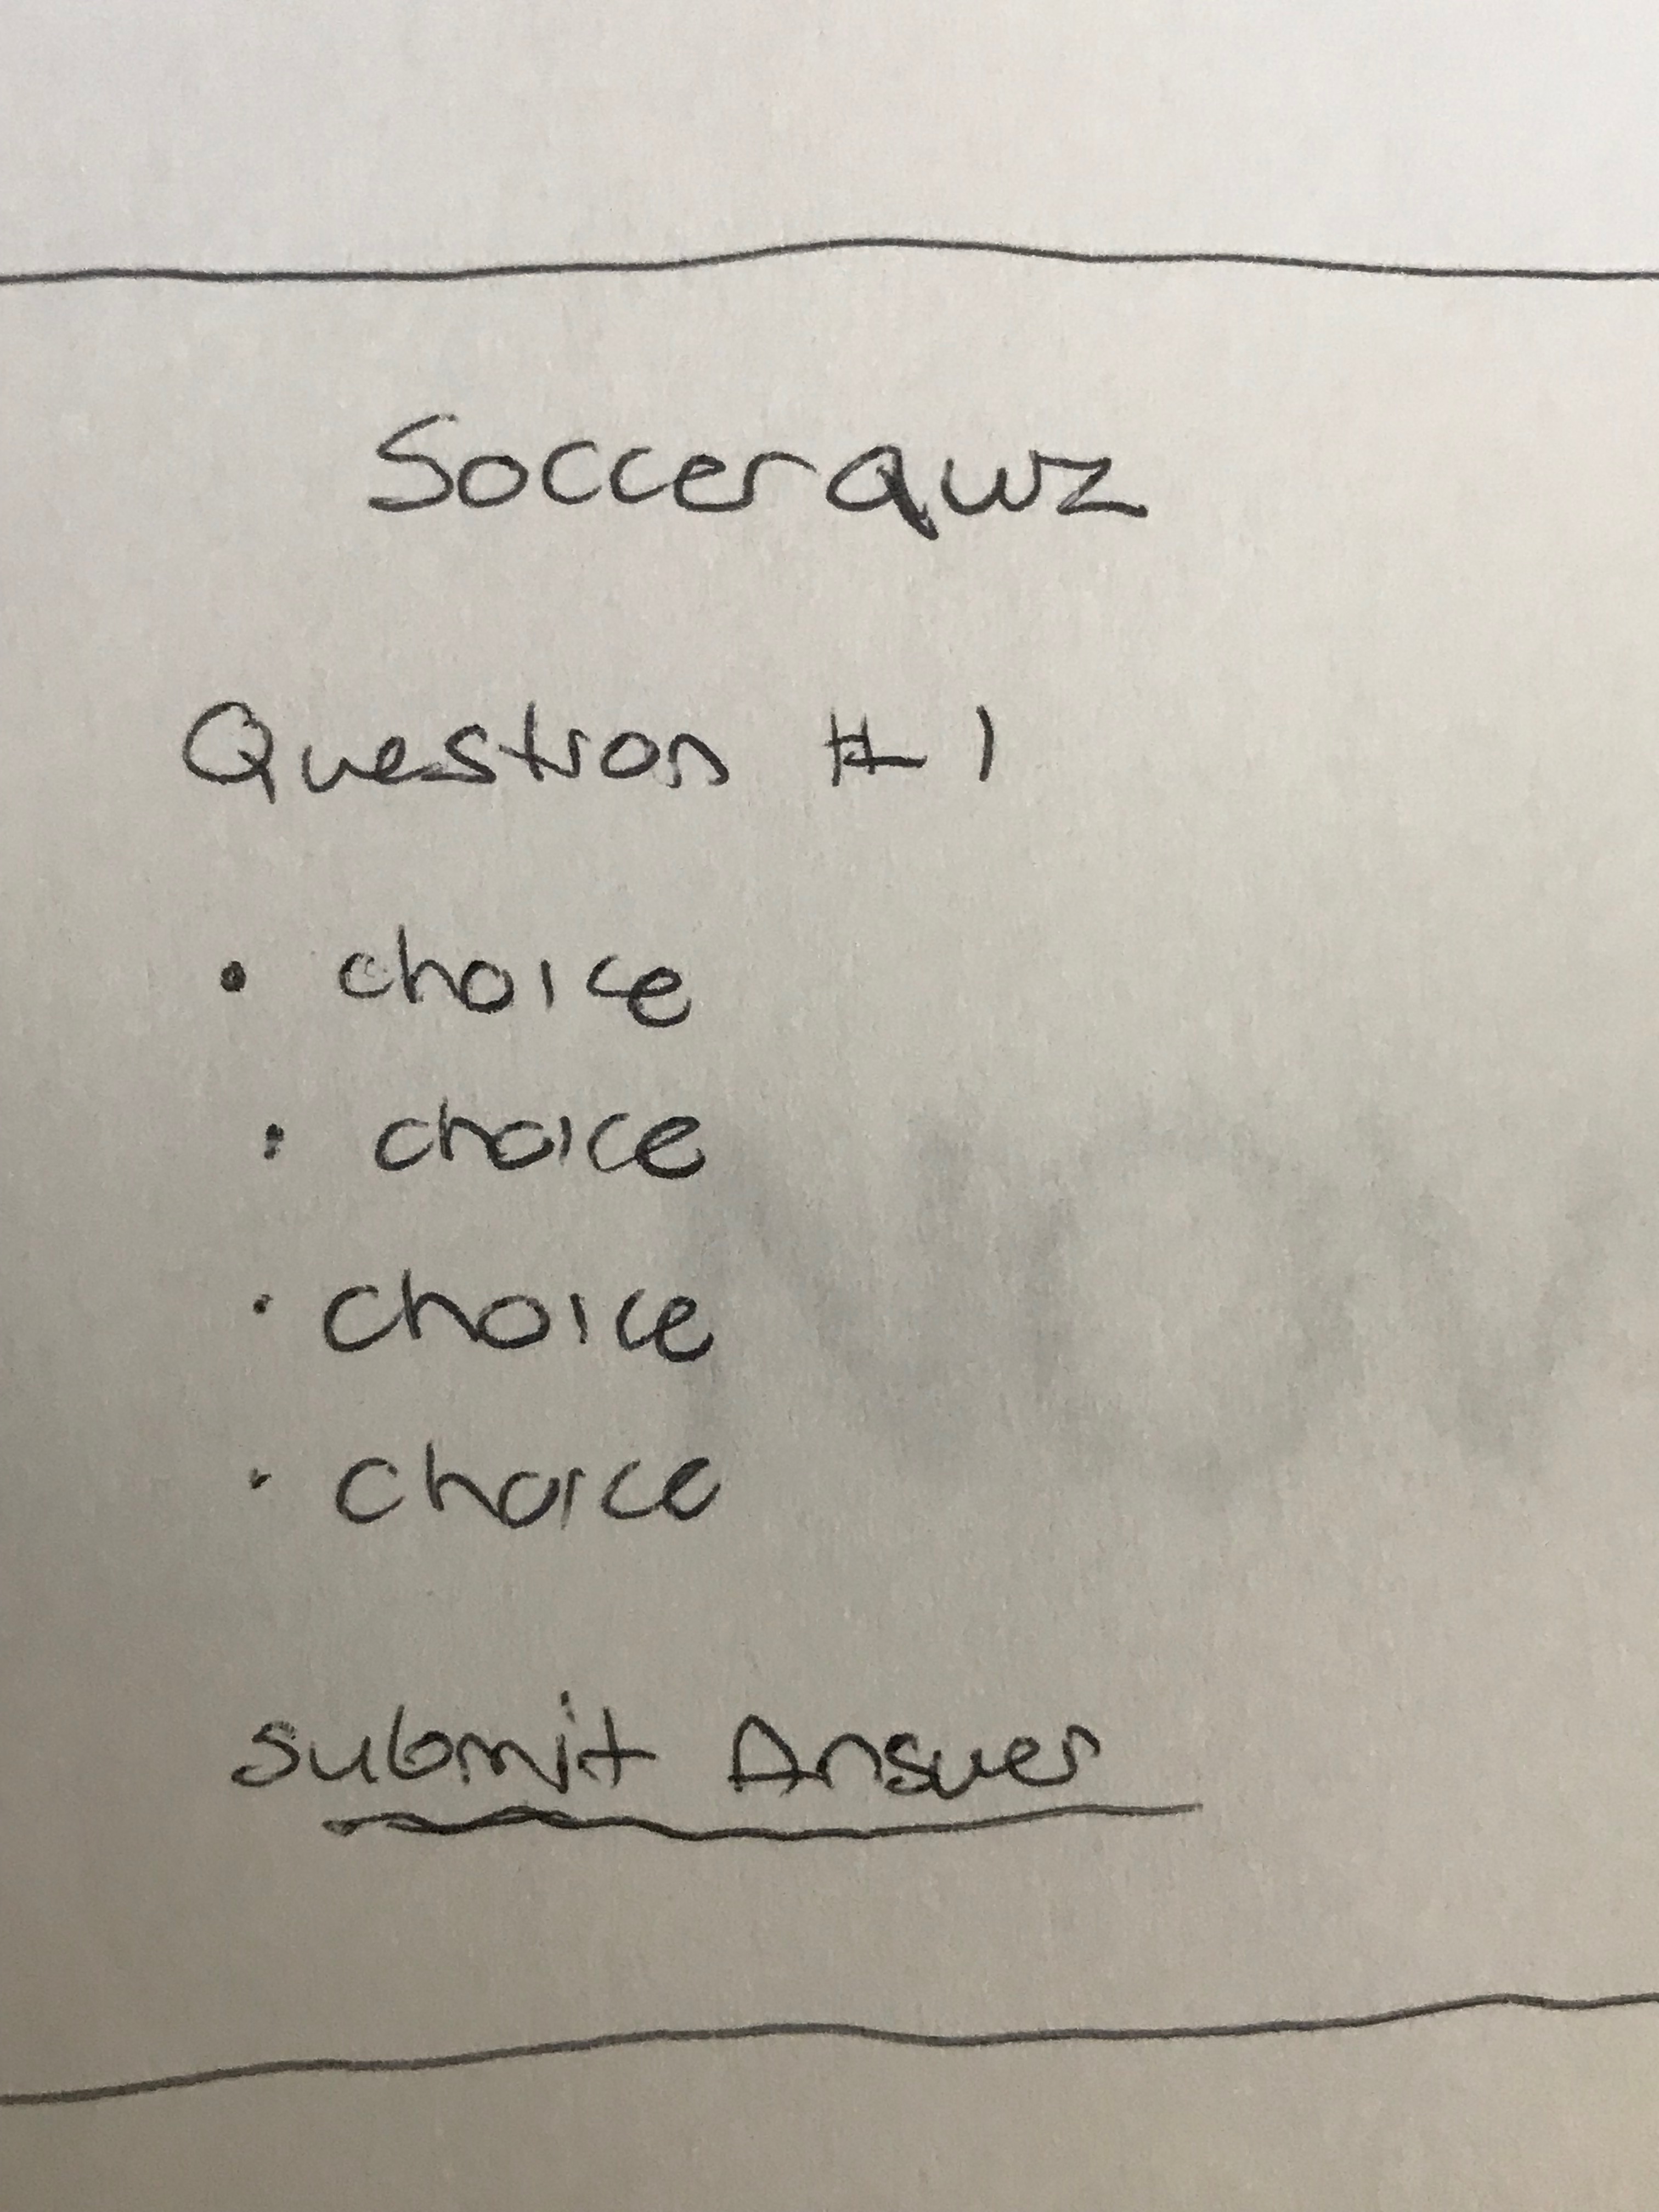 Soccer quiz
Question #1
• choice
• choice
• choice
• choice
submit Answer